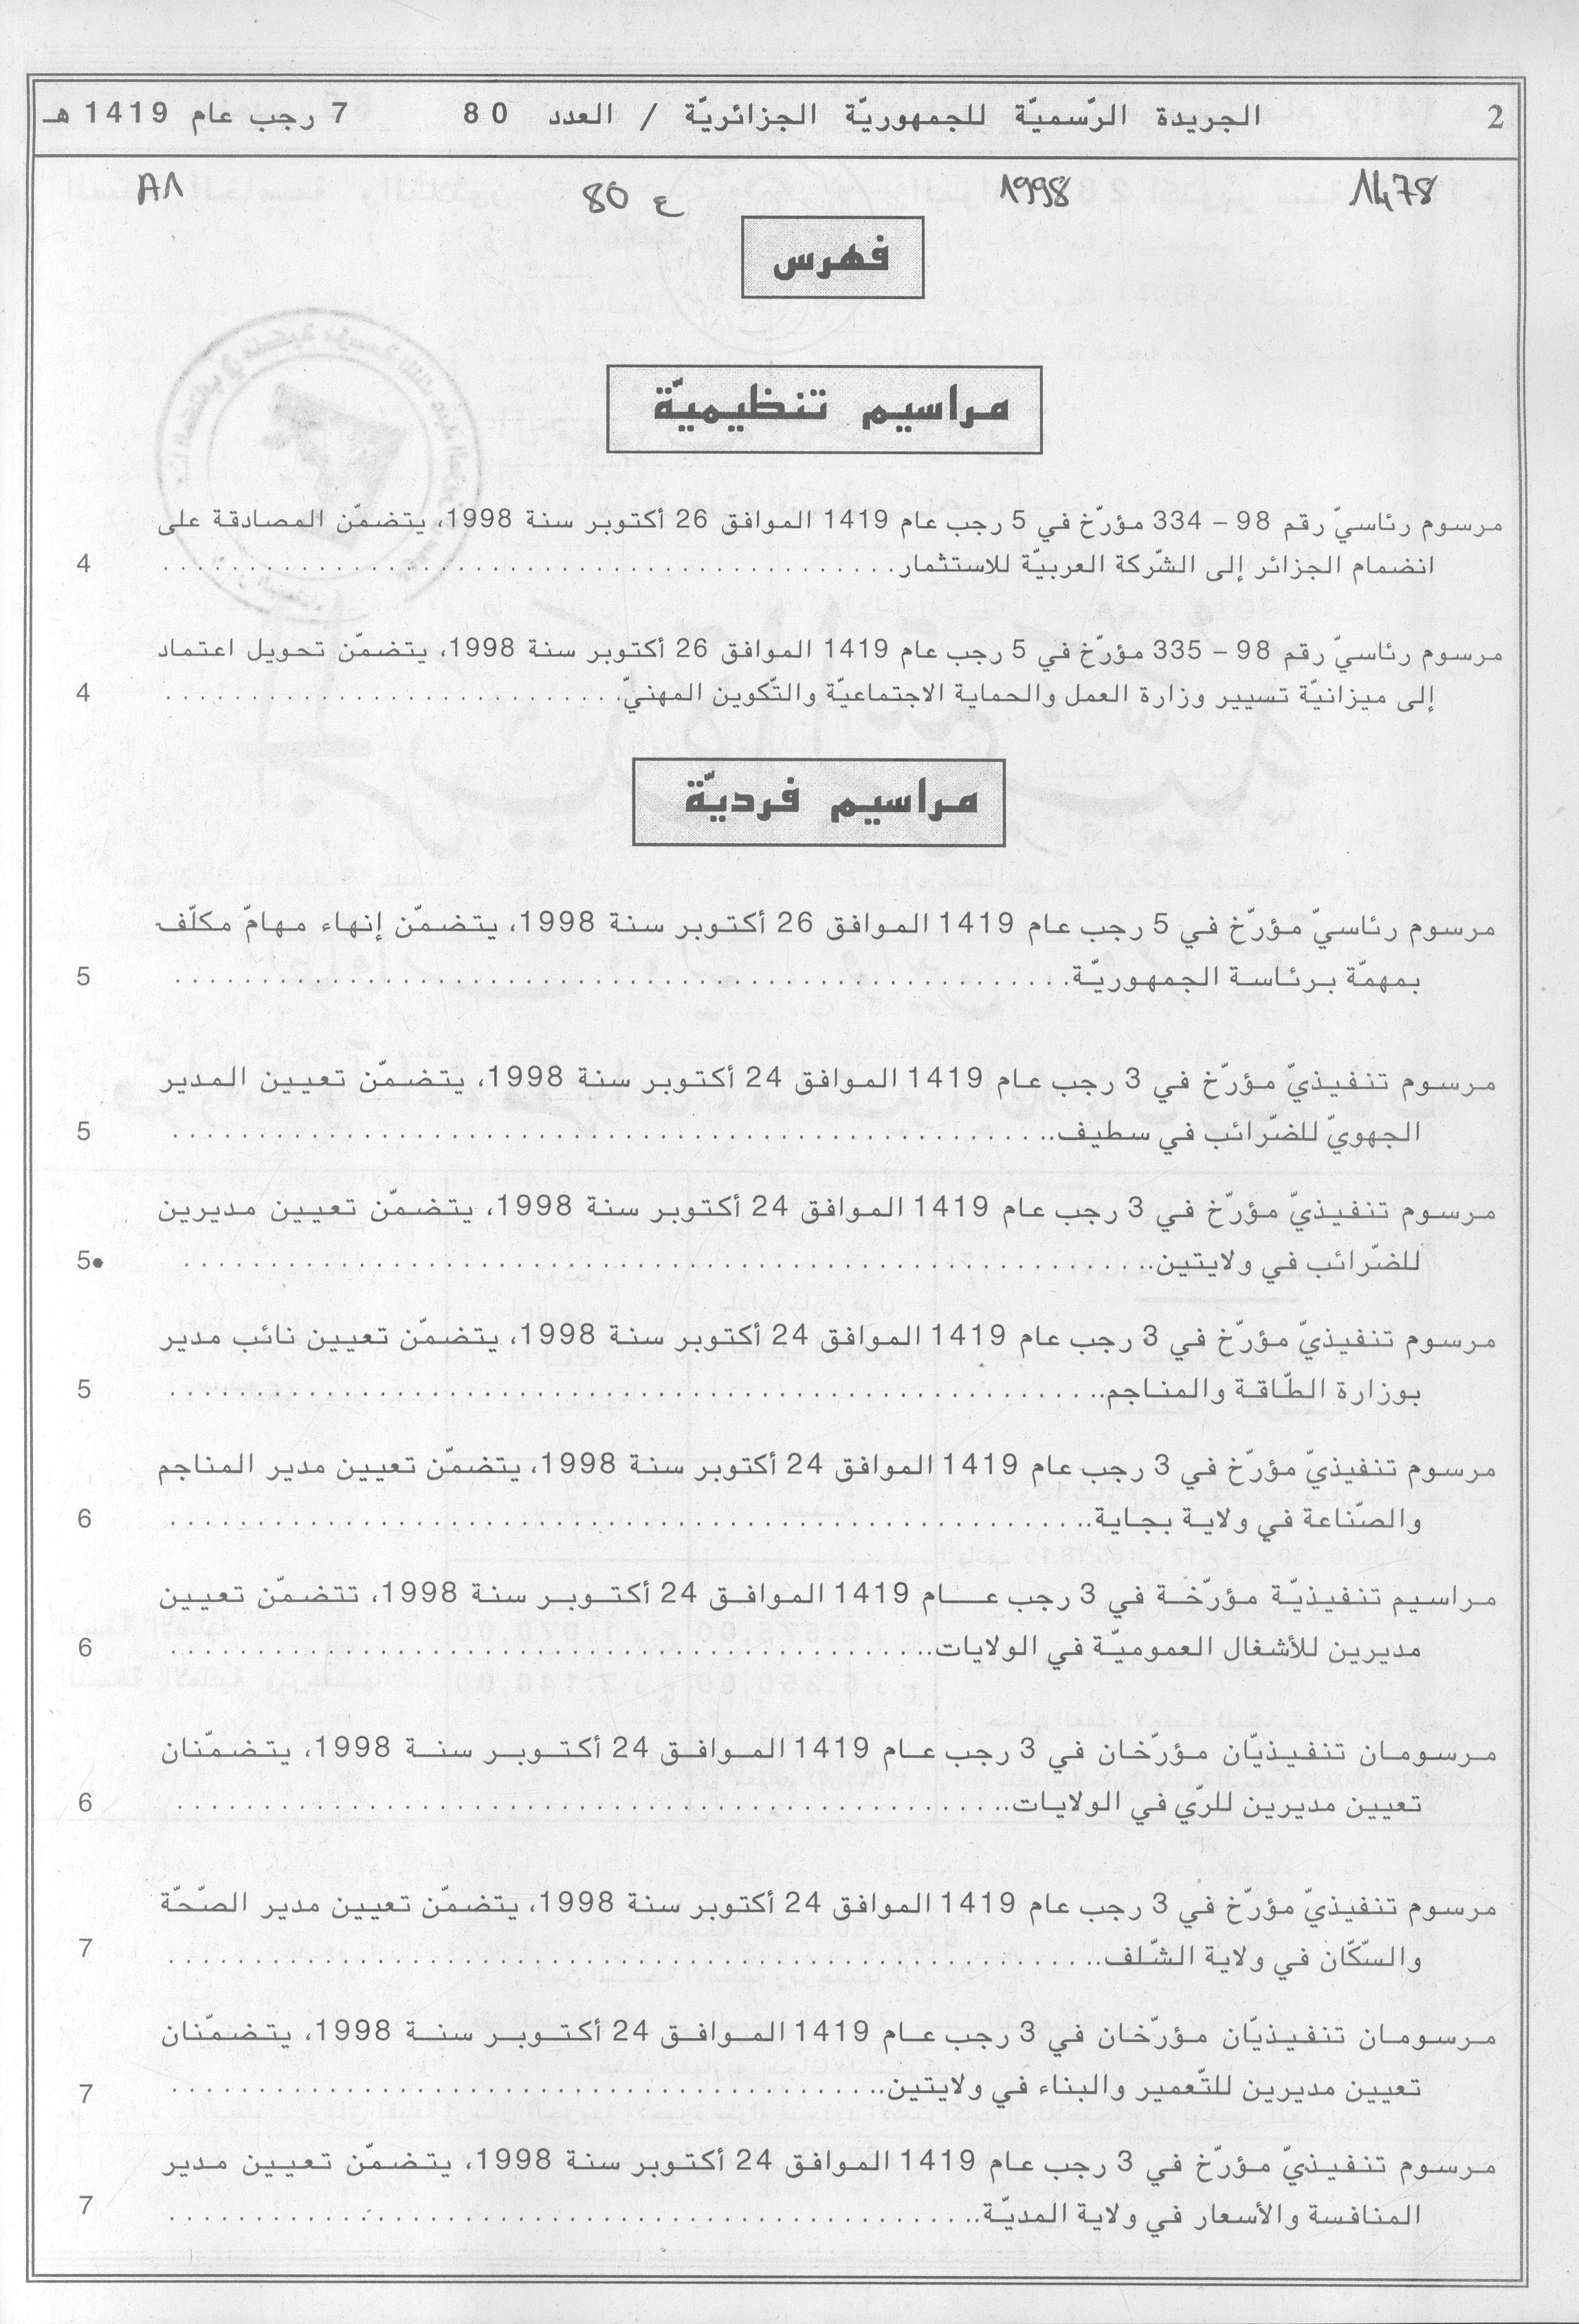 2 الجريدة الرّسميّة للجمهوريّة الجزائريّة / العدد 80 7 رجب عام 1419 هـ
1478 1998 ع 80 A1
فهرس
مراسيم تنظيميّة
مرسوم رئاسيّ رقم 98 – 334 مؤرّخ في 5 رجب عام 1419 الموافق 26 أكتوبر سنة 1998، يتضمّن المصادقة على
انضمام الجزائر إلى الشّركة العربيّة للاستثمار.................................................... 4
مرسوم رئاسيّ رقم 98 – 335 مؤرّخ في 5 رجب عام 1419 الموافق 26 أكتوبر سنة 1998، يتضمّن تحويل اعتماد
إلى ميزانيّة تسيير وزارة العمل والحماية الاجتماعيّة والتّكوين المهنيّ................................. 4
مراسيم فرديّة
مرسوم رئاسيّ مؤرّخ في 5 رجب عام 1419 الموافق 26 أكتوبر سنة 1998، يتضمّن إنهاء مهامّ مكلّف
بمهمّة برئاسة الجمهوريّة............................................................... 5
مرسوم تنفيذيّ مؤرّخ في 3 رجب عام 1419 الموافق 24 أكتوبر سنة 1998، يتضمّن تعيين المدير
الجهويّ للضّرائب في سطيف............................................................... 5
مرسوم تنفيذيّ مؤرّخ في 3 رجب عام 1419 الموافق 24 أكتوبر سنة 1998، يتضمّن تعيين مديرين
للضّرائب في ولايتين..................................................................... 5
مرسوم تنفيذيّ مؤرّخ في 3 رجب عام 1419 الموافق 24 أكتوبر سنة 1998، يتضمّن تعيين نائب مدير
بوزارة الطّاقة والمناجم.................................................................. 5
مرسوم تنفيذيّ مؤرّخ في 3 رجب عام 1419 الموافق 24 أكتوبر سنة 1998، يتضمّن تعيين مدير المناجم
والصّناعة في ولاية بجاية................................................................. 6
مراسيم تنفيذيّة مؤرّخة في 3 رجب عام 1419 الموافق 24 أكتوبر سنة 1998، تتضمّن تعيين
مديرين للأشغال العموميّة في الولايات...................................................... 6
مرسومان تنفيذيّان مؤرّخان في 3 رجب عام 1419 الموافق 24 أكتوبر سنة 1998، يتضمّنان
تعيين مديرين للرّي في الولايات............................................................ 6
مرسوم تنفيذيّ مؤرّخ في 3 رجب عام 1419 الموافق 24 أكتوبر سنة 1998، يتضمّن تعيين مدير الصّحّة
والسّكّان في ولاية الشّلف................................................................. 7
مرسومان تنفيذيّان مؤرّخان في 3 رجب عام 1419 الموافق 24 أكتوبر سنة 1998، يتضمّنان
تعيين مديرين للتّعمير والبناء في ولايتين................................................... 7
مرسوم تنفيذيّ مؤرّخ في 3 رجب عام 1419 الموافق 24 أكتوبر سنة 1998، يتضمّن تعيين مدير
المنافسة والأسعار في ولاية المديّة......................................................... 7